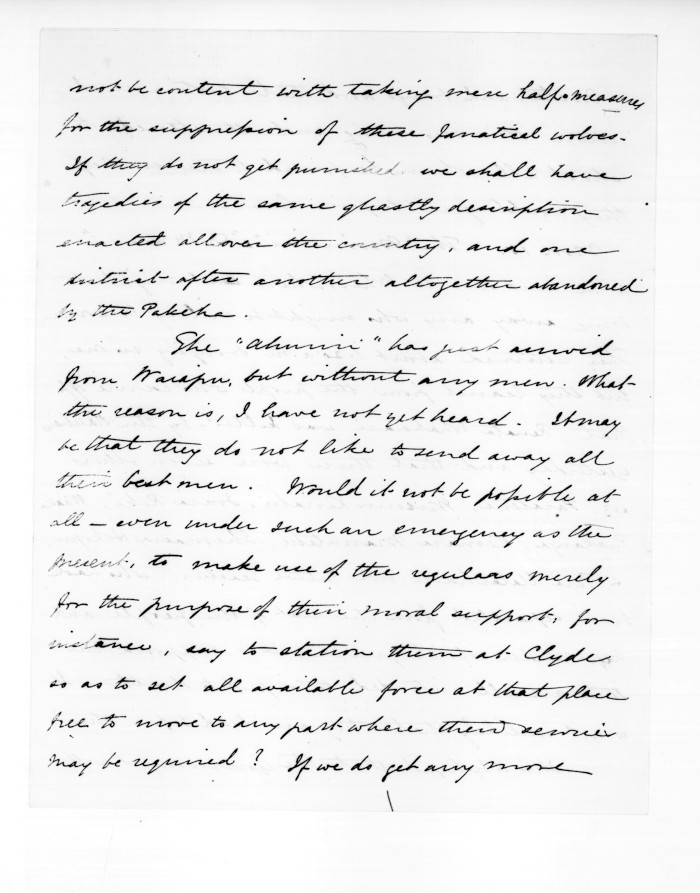 not be content with taking mere half-measures
for the suppression of these fanatical wolves.
If they do not get punished we shall have
tragedies of the same ghastly description
enacted all over the country, and one
district after another altogether abandoned
by the Pakeha.
The "Ahuriri" has just arrived
from Waiapu, but without any men. What
the reason is, I have not yet heard. It may
be that they do not like to send away all
their best men. Would it not be possible at
all – even under such an emergency as the
present, to make use of the regulars merely
for the purpose of their moral support, for
instance, say to station them at Clyde
so as to set all available force at that place
free to move to any part where their services
may be required? If we do get any more